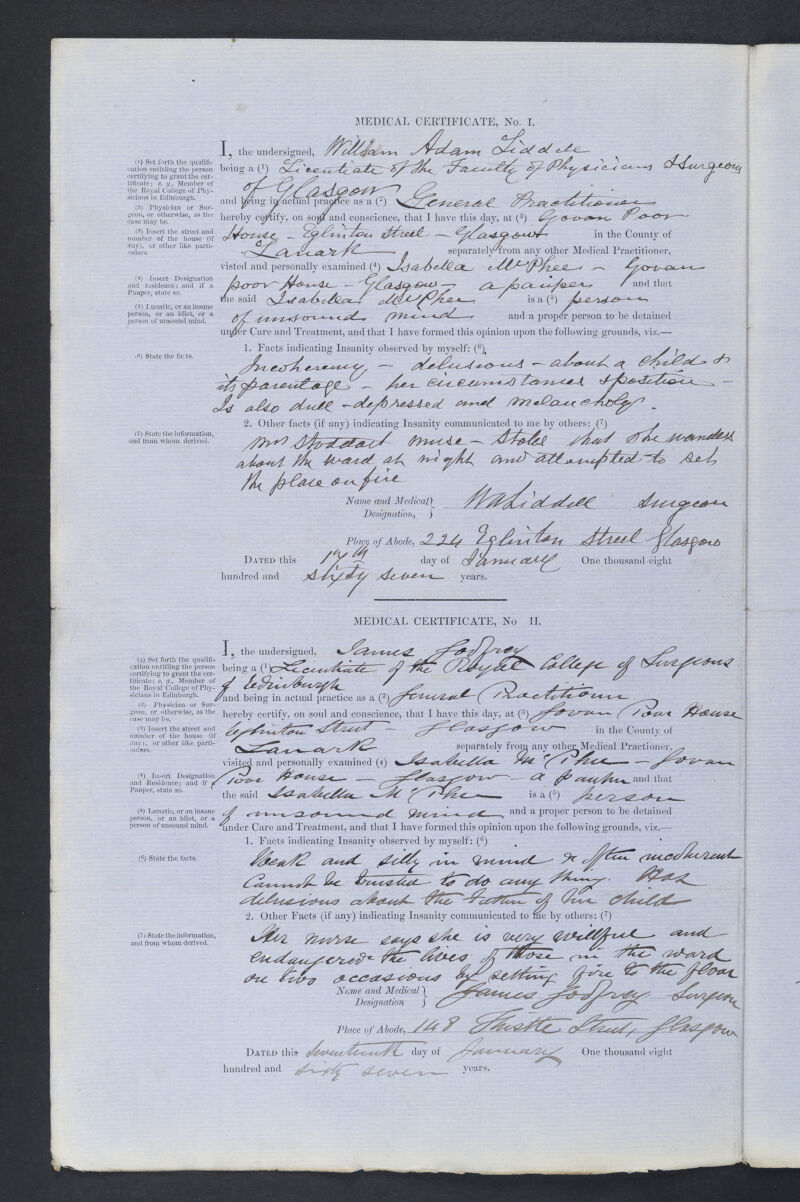 MEDICAL CERTIFICATE, No. I.
I, the undersigned, William Adam Liddell
(1) Set forth the qualifi-
cation entitling the person
certifying to grant the cer-
tificate; e. g., Member of
the Royal College of Phy-
sicians in Edinburgh.
being a (1) Licentiate of the Faculty of Physicians & Surgeons
of Glasgow
and being in actual practice as a (2) General Practitioner
(2) Physician or Sur-
geon, or otherwise, as the
case may be.
hereby certify, on soul and conscience, that I have this day, at (3) Govan Poor
(3) Insert the street and
number of the house (if
any), or other like parti-
culars.
House - Eglinton Street - Glasgow in the County of
Lanark separately from any other Medical Practitioner,
visted and personally examined (4) Isabella McPhee - Govan
(4) Insert Designation
and residence; and if a
Pauper, state so.
poor House - Glasgow - a pauper and that
the said Isabella McPhee is a (5) person
(5) Lunatic, or an insane
person, or an idiot, or a
person of unsound mind.
of unsound mind and a proper person to be detained
under Care and Treatment, and that I have formed this opinion upon the following grounds, viz.—
1. Facts indicating Insanity observed by myself: (6)
(6) State the facts.
Incoherency - delusions - about a child &
its parentage - her circumstances & position -
Is also dull - depressed and melancholy.
2. Other facts (if any) indicating Insanity communicated to me by others: (7)
(7) State the information,
and from whom derived.
Mrs Stoddart nurse - States that she wanders
about the ward at night and attempted to set
the place on fire
Name and Medical Designation, } WA Liddell Surgeon
Place of Abode, 224 Eglinton Street Glasgow
DATED this 17th day of January One thousand eight
hundred and sixty seven years.
MEDICAL CERTIFICATE, No II.
I, the undersigned, James Godfrey
(1) Set forth the qualifi-
cation entitling the person
certifying to grant the cer-
tificate; e. g., Member of
the Royal College of Phy-
sicians in Edinburgh.
being a (1) Licentiate of the Royal College of Surgeons
of Edinburgh
and being in actual practice as a (2) General Practitioner
(2) Physician or Sur-
geon, or otherwise, as the
case may be.
hereby certify, on soul and conscience, that I have this day, at (3) Govan Poor House
(3) Insert the street and
number of the house (if
any), or other like parti-
culars.
Eglinton Street - Glasgow in the County of
Lanark separately from any other Medical Practioner,
visited and personally examined (4) Isabella McPhee - Govan
(4) Insert Designation
and Residence; and if a
Pauper, state so.
Poor House - Glasgow - a pauper and that
the said Isabella McPhee is a (5) person
(5) Lunatic, or an insane
person, or an idiot, or a
person of unsound mind.
of unsound mind and a proper person to be detained
under Care and Treatment, and that I have formed this opinion upon the following grounds, viz.—
1. Facts indicating Insanity observed by myself: (6)
(6) State the facts.
Weak and silly in mind & often incoherent
Cannot be trusted to do any thing. Has
delusions about the father of her child
2. Other Facts (if any) indicating Insanity communicated to me by others: (7)
(7) State the information,
and from whom derived.
Her nurse says she is very willful and
endangered the lives of those in the ward
on two occasions by setting fire to the floor
Name and Medical Designation } James Godfrey Surgeon
Place of Abode, 148 Thistle Street, Glasgow
DATED this Seventeenth day of January One thousand eight
hundred and sixty seven years.